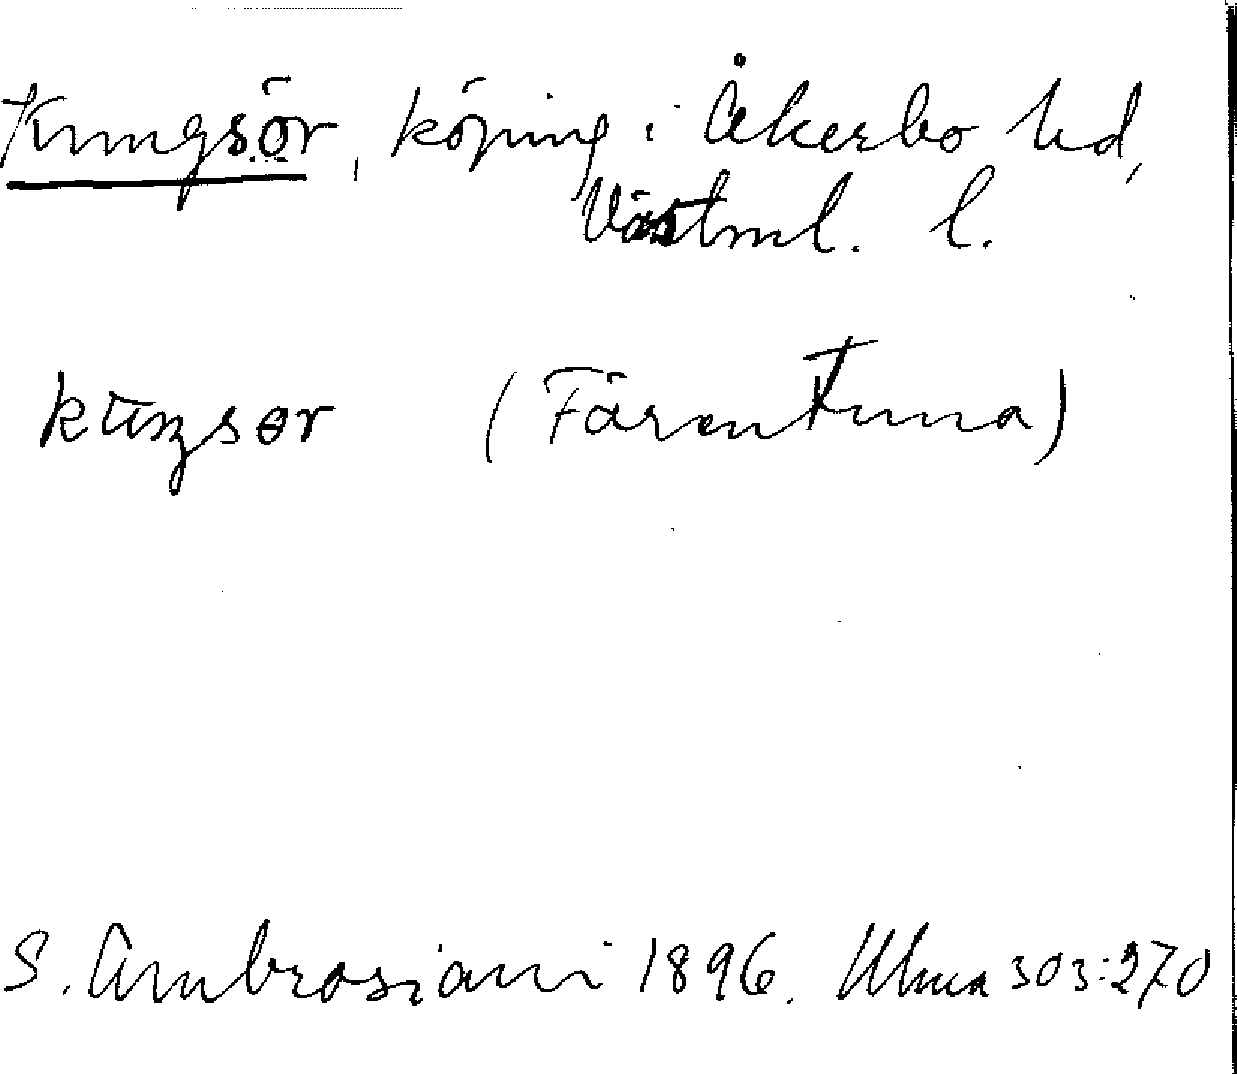 Kungsör, köping i Åkerbo hd,
Västml. l.
(Färentuna)
S. Ambrosiani 1896. Ulma 303:270